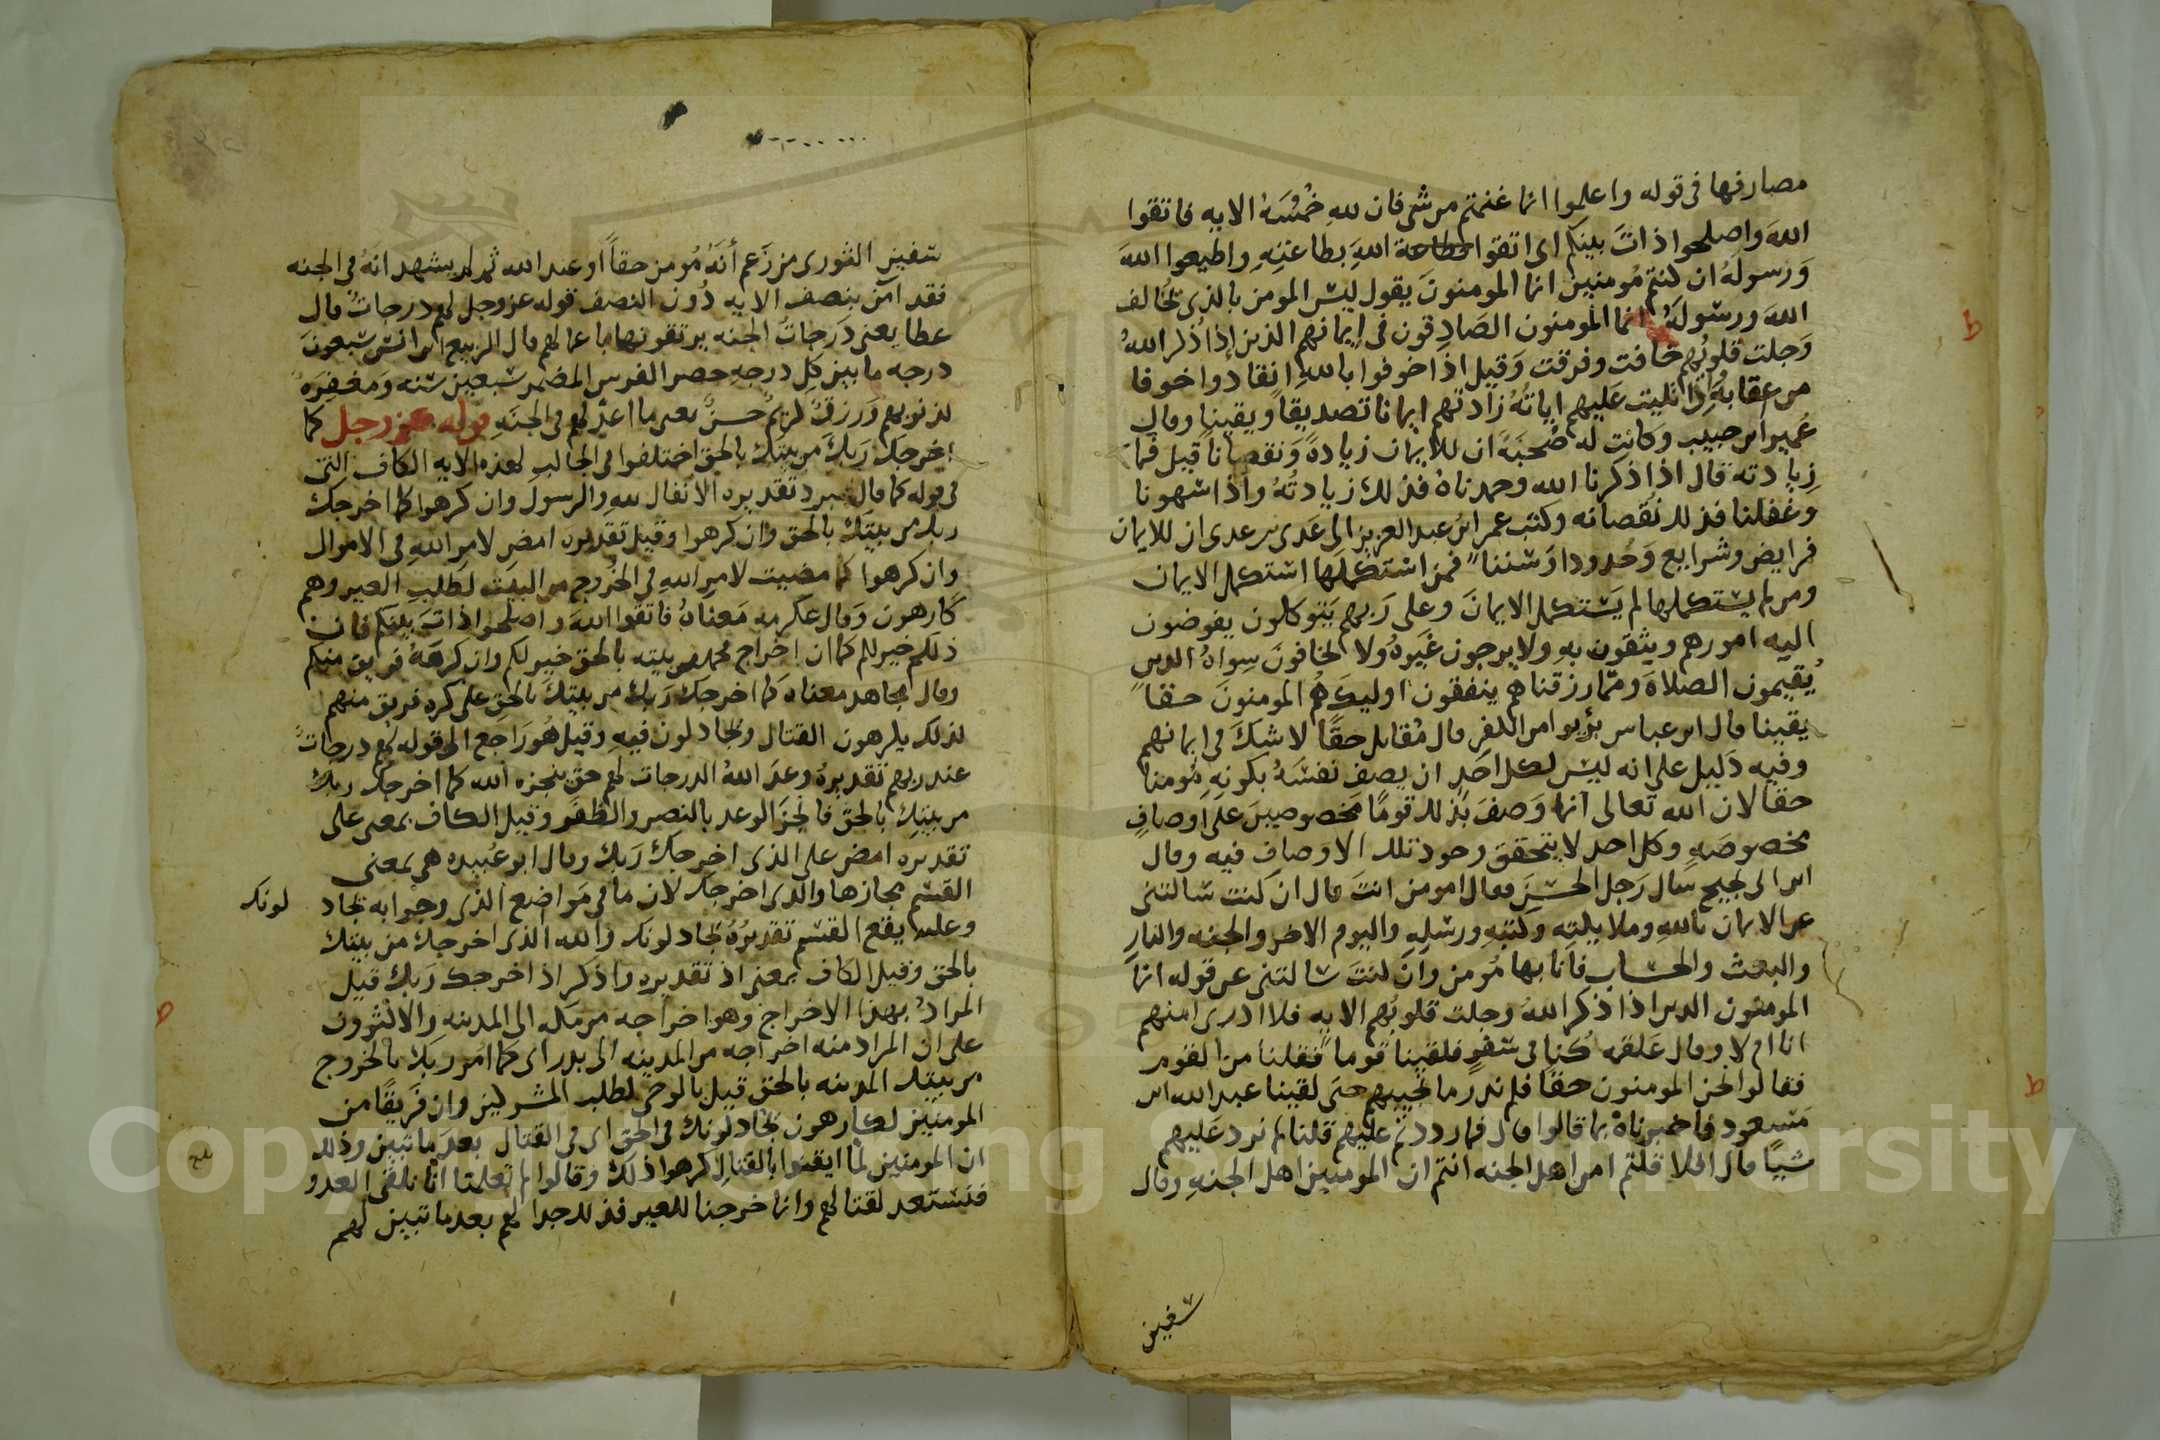 مصارفها في قوله واعلموا انما غنمتم من شي فان لله خمسه الايه فاتقوا
الله واصلحوا ذات بينكم اى اتقوا الله بطاعته واطيعوا الله
ورسوله ان كنتم مومنين انما المومنون يقول ليس المومن بالذى يخالف
الله ورسوله انما المومنون الصادقون في ايمانهم الذين اذا ذكر الله
وجلت قلوبهم خافت وفرقت وقيل اذا خوفوا بالله انقادوا خوفا
من عقابه واذا تليت عليهم اياته زادتهم ايمانا تصديقا ويقينا وقال
عمير ابن حبيب وكانت له صحبة ان للايمان زيادة ونقصانا قيل فما
زيادته قال اذا ذكرنا الله وحمدناه فذلك زيادته واذا سهونا
وغفلنا فذلك نقصانه وكتب عمر ابن عبد العزيز الى عدى بن عدى ان للايمان
فرايض وشرايع وحدودا وسننا فمن استكملها استكمل الايمان
ومن لم يستكملها لم يستكمل الايمان وعلى ربهم يتوكلون يفوضون
اليه امورهم ويثقون به ولا يرجون غيره ولا يخافون سواه الذين
يقيمون الصلاة ومما رزقناهم ينفقون اوليك هم المومنون حقا
يقينا قال ابن عباس برئوا من الكفر قال مقاتل حقا لا شك في ايمانهم
وفيه دليل على انه ليس لكل احد ان يصف نفسه بكونه مومنا
حقا لان الله تعالى انما وصف بذلك قوما مخصوصين على اوصاف
مخصوصه وكل احد لا يتحقق وجود تلك الاوصاف فيه وقال
ابن ابى نجيح سال رجل الحسن فقال امومن انت قال ان كنت سالتنى
عن الايمان بالله وملايكته وكتبه ورسله واليوم الاخر والجنه والنار
والبعث والحساب فانا بها مومن وان كنت سالتنى عن قوله انما
المومنون الذين اذا ذكر الله وجلت قلوبهم الايه فلا ادرى امنهم
انا ام لا وقال علقمه كنا في سفر فلقينا قوما فقلنا من القوم
فقالوا نحن المومنون حقا فلم ندر ما نجيبهم حتى لقينا عبد الله ابن
مسعود فاخبرناه بما قالوا قال فما رددتم عليهم قلنا لم نرد عليهم
شيا قال افلا قلتم امن اهل الجنه انتم ان المومنين اهل الجنه وقال
سفين
سفين الثورى من زعم انه مومن حقا او عند الله ثم لم يشهد انه في الجنه
فقد امن بنصف الايه دون النصف قوله عز وجل لهم درجات قال
عطا يعنى درجات الجنه يرتقونها باعمالهم قال الربيع ابن انس سبعون
درجه ما بين كل درجه حصر الفرس المضمر سبعين سنه ومغفرة
لذنوبهم ورزق كريم حسن يعنى ما اعد لهم في الجنه قوله عز وجل كما
اخرجك ربك من بيتك بالحق اختلفوا في الجالب لهذه الايه الكاف التى
في قوله كما قال مبرد تقديره الانفال لله والرسول وان كرهوا كما اخرجك
ربك من بيتك بالحق وان كرهوا وقيل تقديره امض لامر الله في الاموال
وان كرهوا كما مضيت لامر الله في الخروج من البيت لطلب العير وهم
كارهون وقال عكرمه معناه فاتقوا الله واصلحوا ذات بينكم فان
ذلكم خير لكم كما ان اخراج محمد من بيته بالحق خير لكم وان كرهه فريق منكم
وقال مجاهد معناه كما اخرجك ربك من بيتك بالحق على كره فريق منهم
كذلك يكرهون القتال ويجادلون فيه وقيل هو راجع الى قوله لهم درجات
عند ربهم تقديره وعد الله الدرجات لهم حق ينجزه الله كما اخرجك ربك
من بيتك بالحق فانجز الوعد بالنصر والظفر وقيل الكاف بمعنى على
تقديره امض على الذى اخرجك ربك وقال ابو عبيده هى بمعنى
القسم مجازها والذى اخرجك لان ما في مواضع الذى وجوابه يجاد
لونك
وعليه يقع القسم تقديره يجادلونك والله الذى اخرجك من بيتك
بالحق وقيل الكاف بمعنى اذ تقديره واذكر اذ اخرجك ربك قيل
المراد بهذا الاخراج وهو اخراجه من مكه الى المدينه والاكثرون
على ان المراد منه اخراجه من المدينه الى بدر اى كما امر ربك بالخروج
من بيتك المدينه بالحق قيل بالوحى لطلب المشركين وان فريقا من
المومنين لكارهون يجادلونك في الحق اى في القتال بعد ما تبين وذلك
ان المومنين لما ايقنوا بالقتال كرهوا ذلك وقالوا لم تعلمنا انا نلقى العدو
فنستعد لقتالهم وانما خرجنا للعير فذلك جدالهم بعد ما تبين لهم